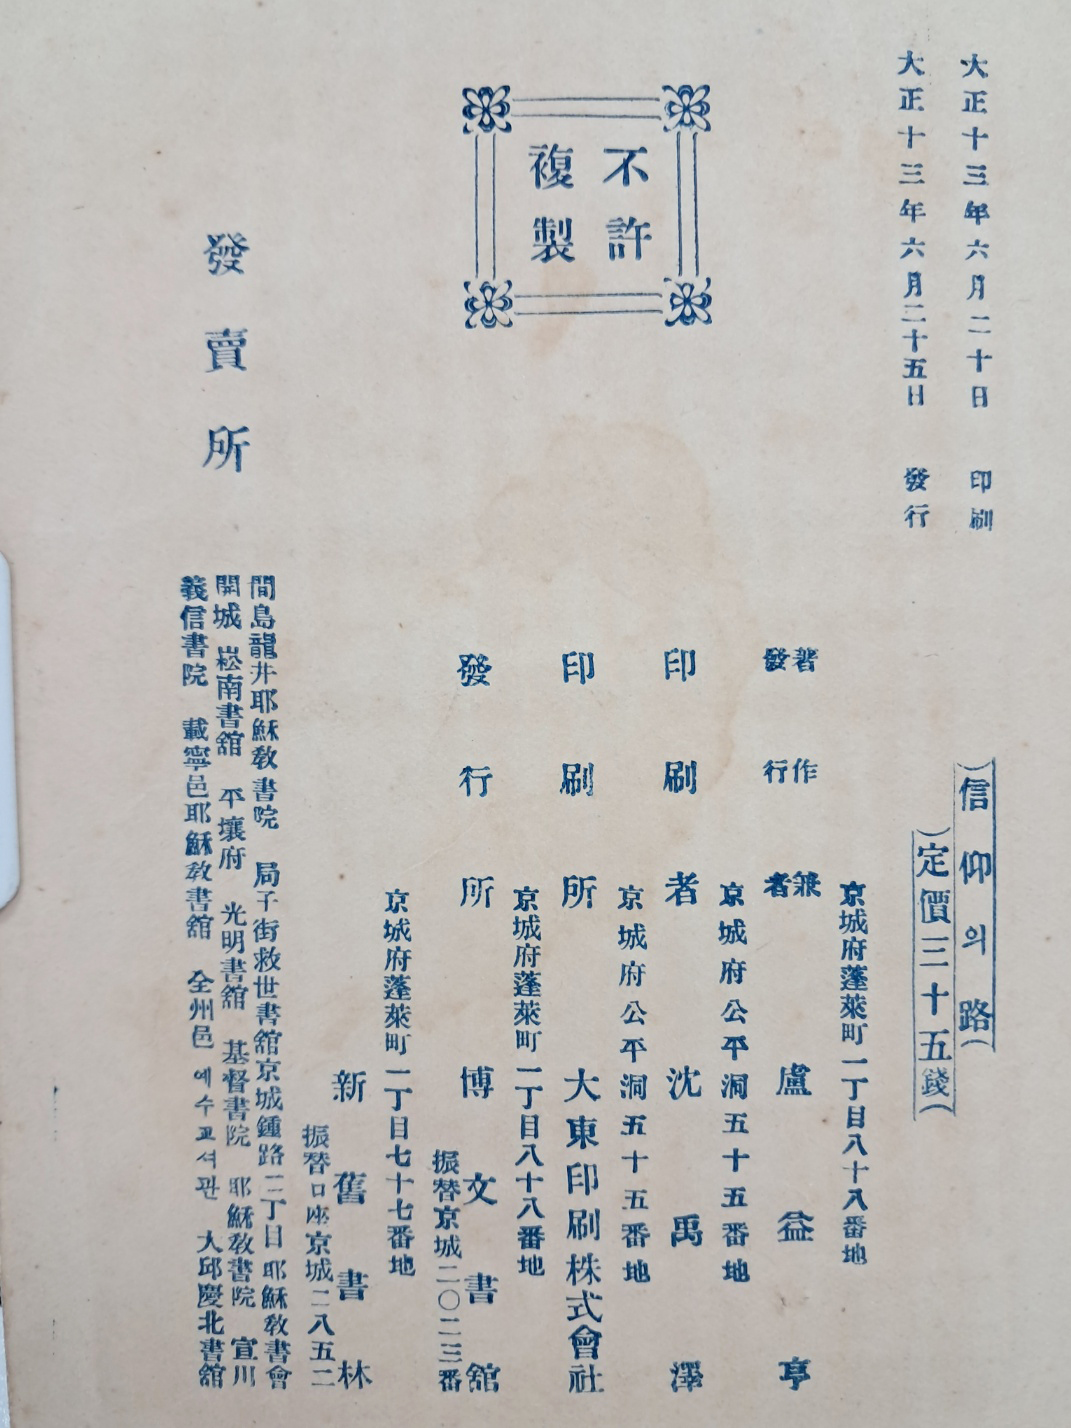 大正十三年六月二十日 印刷
大正十三年六月二十五日 發行
信仰의路
定價三十五錢
不許
複製
京城府蓬萊町一丁目八十八番地
著作兼
發行者 盧益亨
京城府公平洞五十五番地
印刷者 沈禹澤
京城府公平洞五十五番地
印刷所 大東印刷株式會社
京城府蓬萊町一丁目八十八番地
發行所 博文書舘
振替京城二〇二三番
京城府蓬萊町一丁目七十七番地
新舊書林
振替口座京城二八五二
發賣所
間島龍井耶穌敎書院 局子街救世書舘京城鍾路二丁目耶穌敎書會
開城 崧南書舘 平壤府 光明書舘 基督書院 耶穌敎書院 宣川
義信書院 載寧邑耶穌敎書舘 全州邑 예수교셔관 大邱慶北書舘